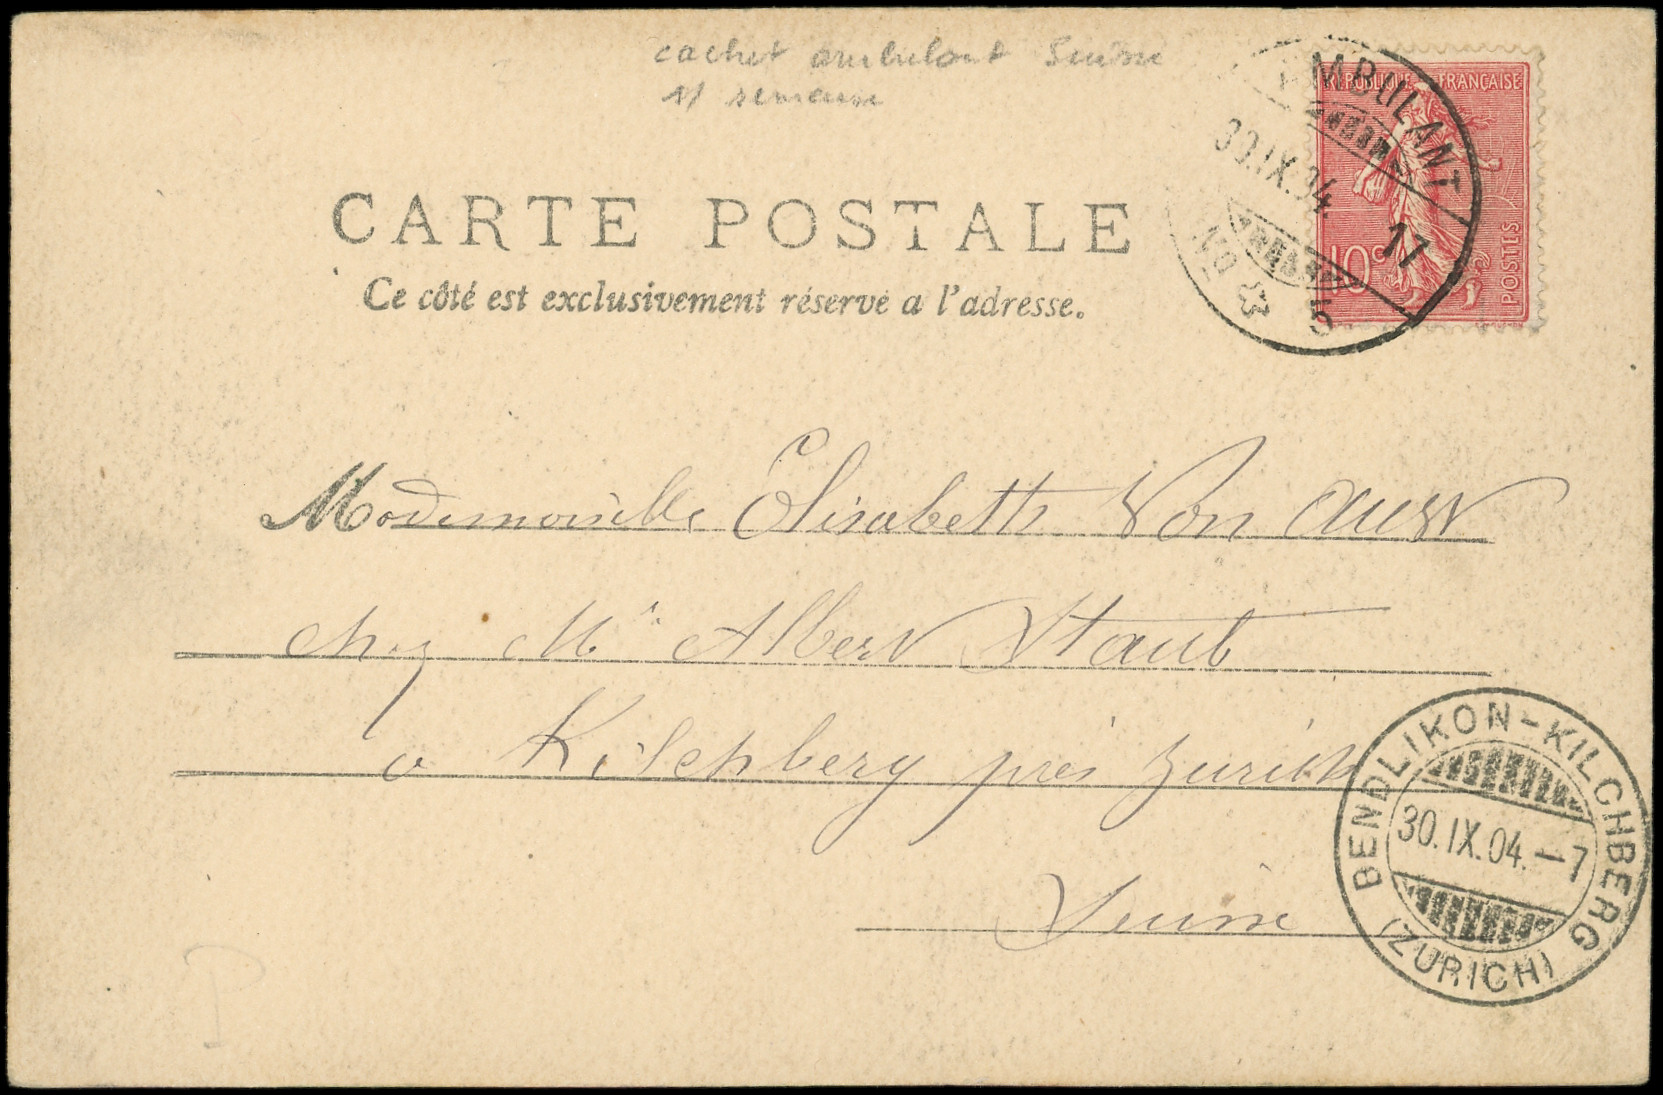 cachet ambulant Suisse
s/ semeuse
AMBULANT
30.IX.04. 17
No 5
REPUBLIQUE FRANÇAISE
10c
POSTES
CARTE POSTALE
Ce côté est exclusivement réservé a l'adresse.
Mademoiselle Elisabeth Von
chez Mr Albert Staub
a Kilchberg près Zurich
Suisse
BENDLIKON-KILCHBERG
30.IX.04.-7
(ZÜRICH)
P